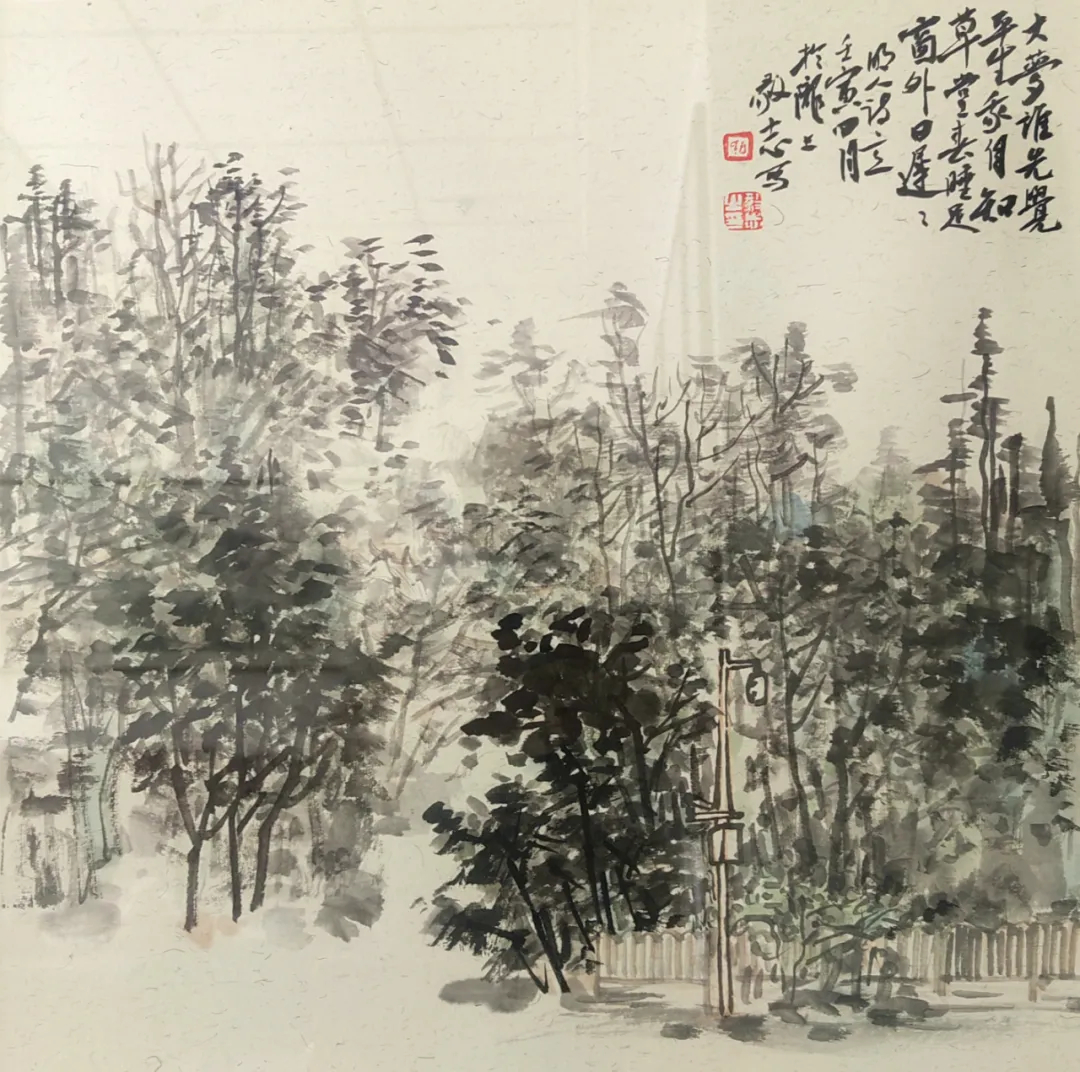 大夢誰先覺
平生我自知
草堂春睡足
窗外日遲〻
明人诗意
壬寅四月
於隴上
敬志写